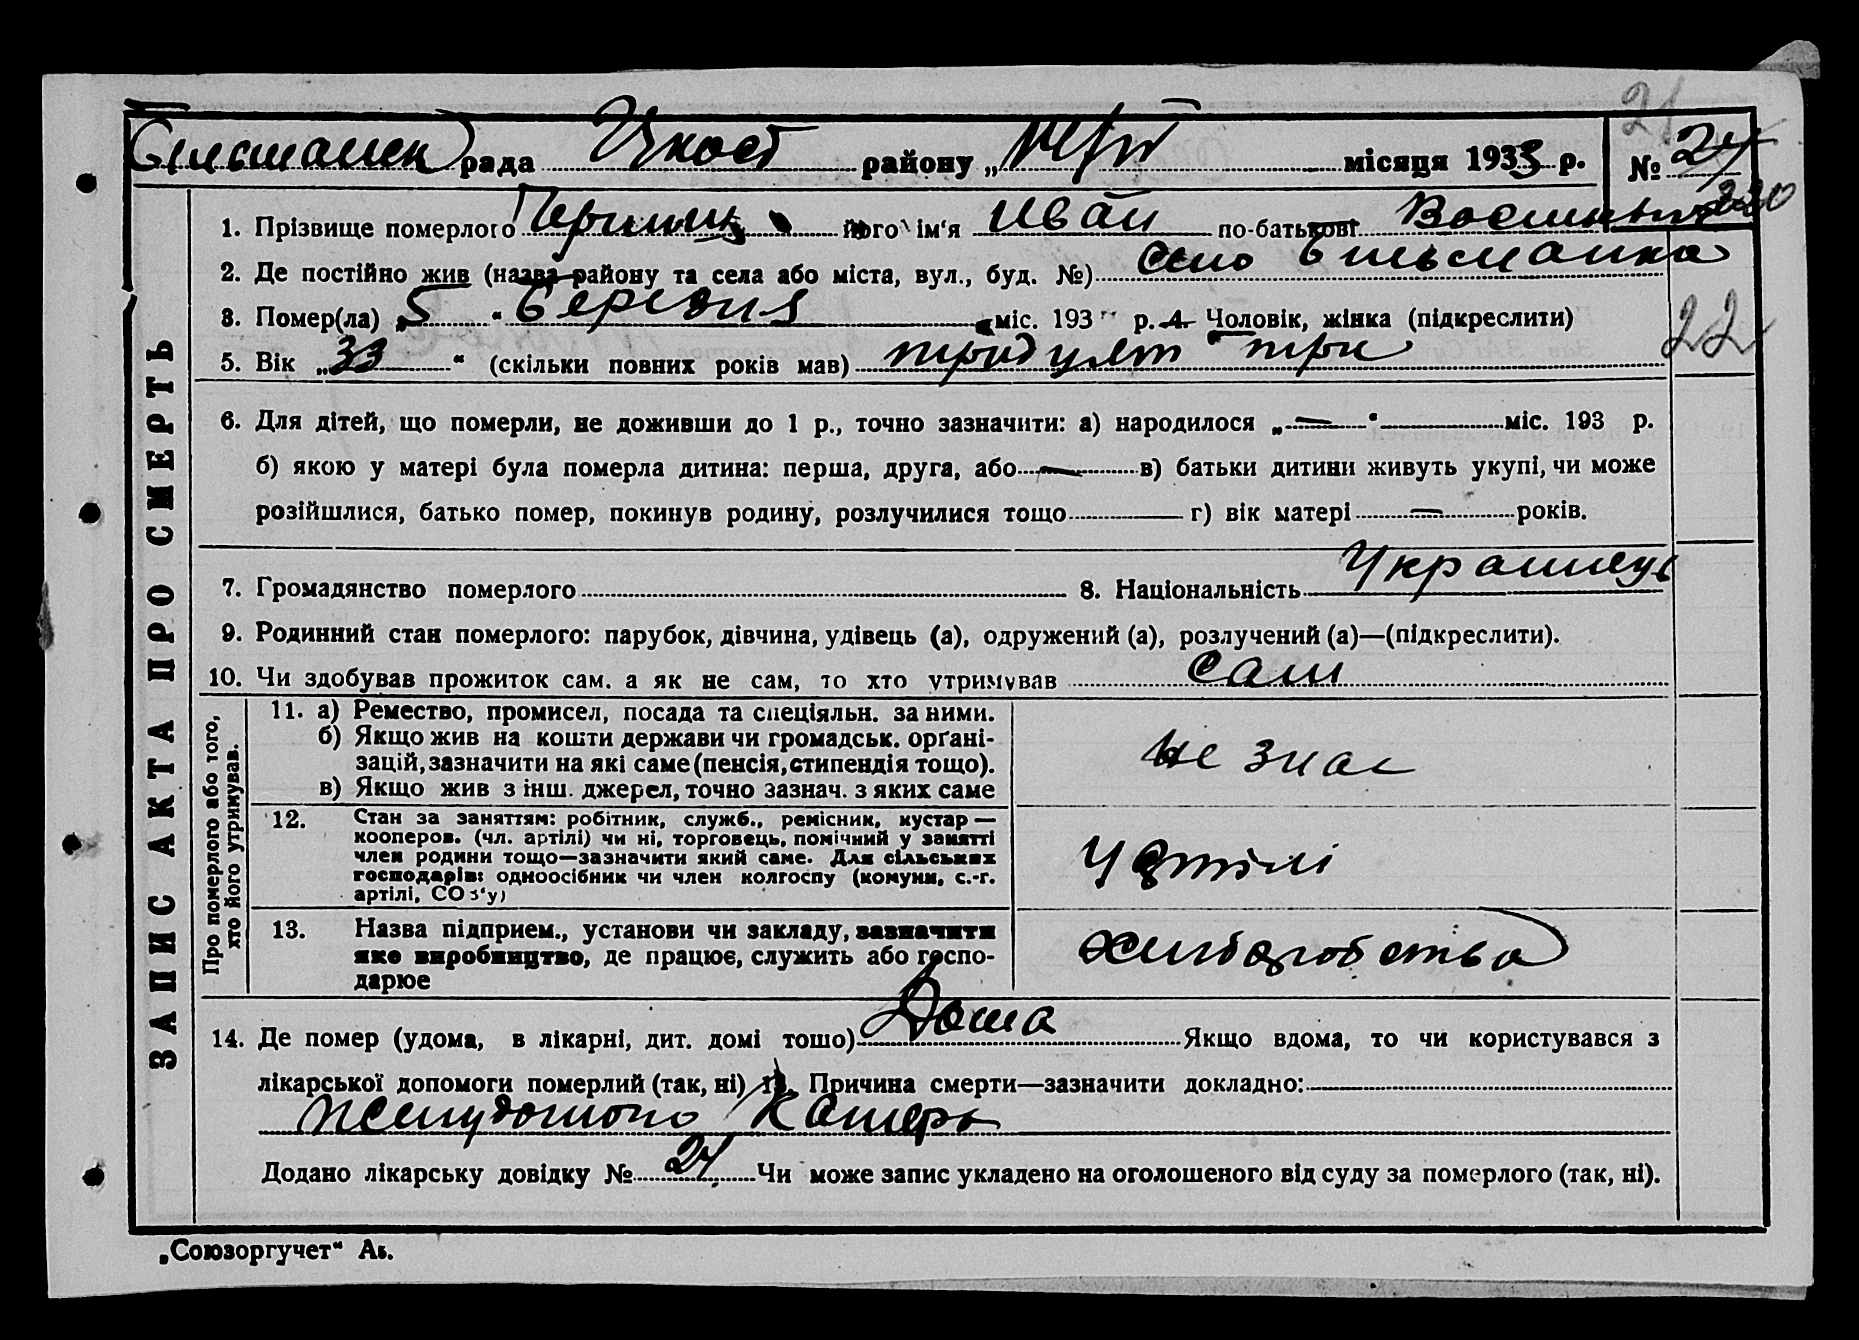 рада району „ місяця 1933 р. № 24
1. Прізвище померлого його ім'я Иван по-батькові
2. Де постійно жив (назва району та села або міста, вул., буд. №) село Вильшанка
3. Помер(ла) „5“ березня міс. 193 р. 4. Чоловік, жінка (підкреслити)
22
5. Вік „33“ (скільки повних років мав) тридцять три
6. Для дітей, що померли, не доживши до 1 р., точно зазначити: а) народилося „—“ міс. 193 р.
б) якою у матері була померла дитина: перша, друга, або — в) батьки дитини живуть укупі, чи може
розійшлися, батько помер, покинув родину, розлучилися тощо г) вік матері — років.
7. Громадянство померлого 8. Національність Украинець
9. Родинний стан померлого: парубок, дівчина, удівець (а), одружений (а), розлучений (а)—(підкреслити).
10. Чи здобував прожиток сам, а як не сам, то хто утримував сам
ЗАПИС АКТА ПРО СМЕРТЬ
Про померлого або того, хто його утримував.
11. а) Ремество, промисел, посада та спеціяльн. за ними.
б) Якщо жив на кошти держави чи громадськ. орґані-
зацій, зазначити на які саме (пенсія, стипендія тощо).
в) Якщо жив з інш. джерел, точно зазнач. з яких саме
не знає
12. Стан за заняттям: робітник, служб., ремісник, кустар —
кооперов. (чл. артілі) чи ні, торговець, помічний у занятті
член родини тощо—зазначити який саме. Для сільських
господарів: одноосібник чи член колгоспу (комуни, с.-г.
артілі, СОЗ'у)
У артілі
13. Назва підприєм., установи чи закладу, зазначити
яке виробництво, де працює, служить або госпо-
дарює
хлиборобства
14. Де помер (удома, в лікарні, дит. домі тощо) Дома Якщо вдома, то чи користувався з
лікарської допомоги померлий (так, ні) Причина смерти—зазначити докладно:
желудошного Катарь
Додано лікарську довідку № 24 Чи може запис укладено на оголошеного від суду за померлого (так, ні).
„Союзоргучет“